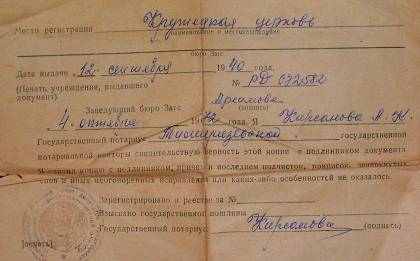 Место регистрации Кружецкая церковь
наименование и местонахождение
бюро Загс
Дата выдачи „12“ сентября 1940 года.
(Печать учреждения, выдавшего № РД 032582
документ)
Заведующий бюро Загс
(подпись)
4 октября 1972 года, я, Кирсанова А. Н.
Государственный нотариус государственной
нотариальной конторы свидетельствую верность этой копии с подлинником документа
с подлинником, и последнем подчисток, приписок, зачеркнутых
слов и иных неоговоренных исправлений или каких-либо особенностей не оказалось.
Зарегистрировано в реестре за №
Взыскано государственной пошлины
Государственный нотариус Кирсанова
(подпись)